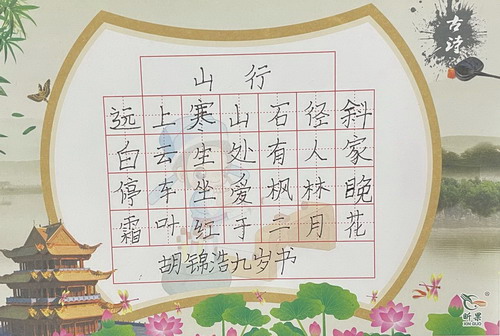 古诗
山行
远上寒山石径斜
白云生处有人家
停车坐爱枫林晚
霜叶红于二月花
胡锦浩九岁书